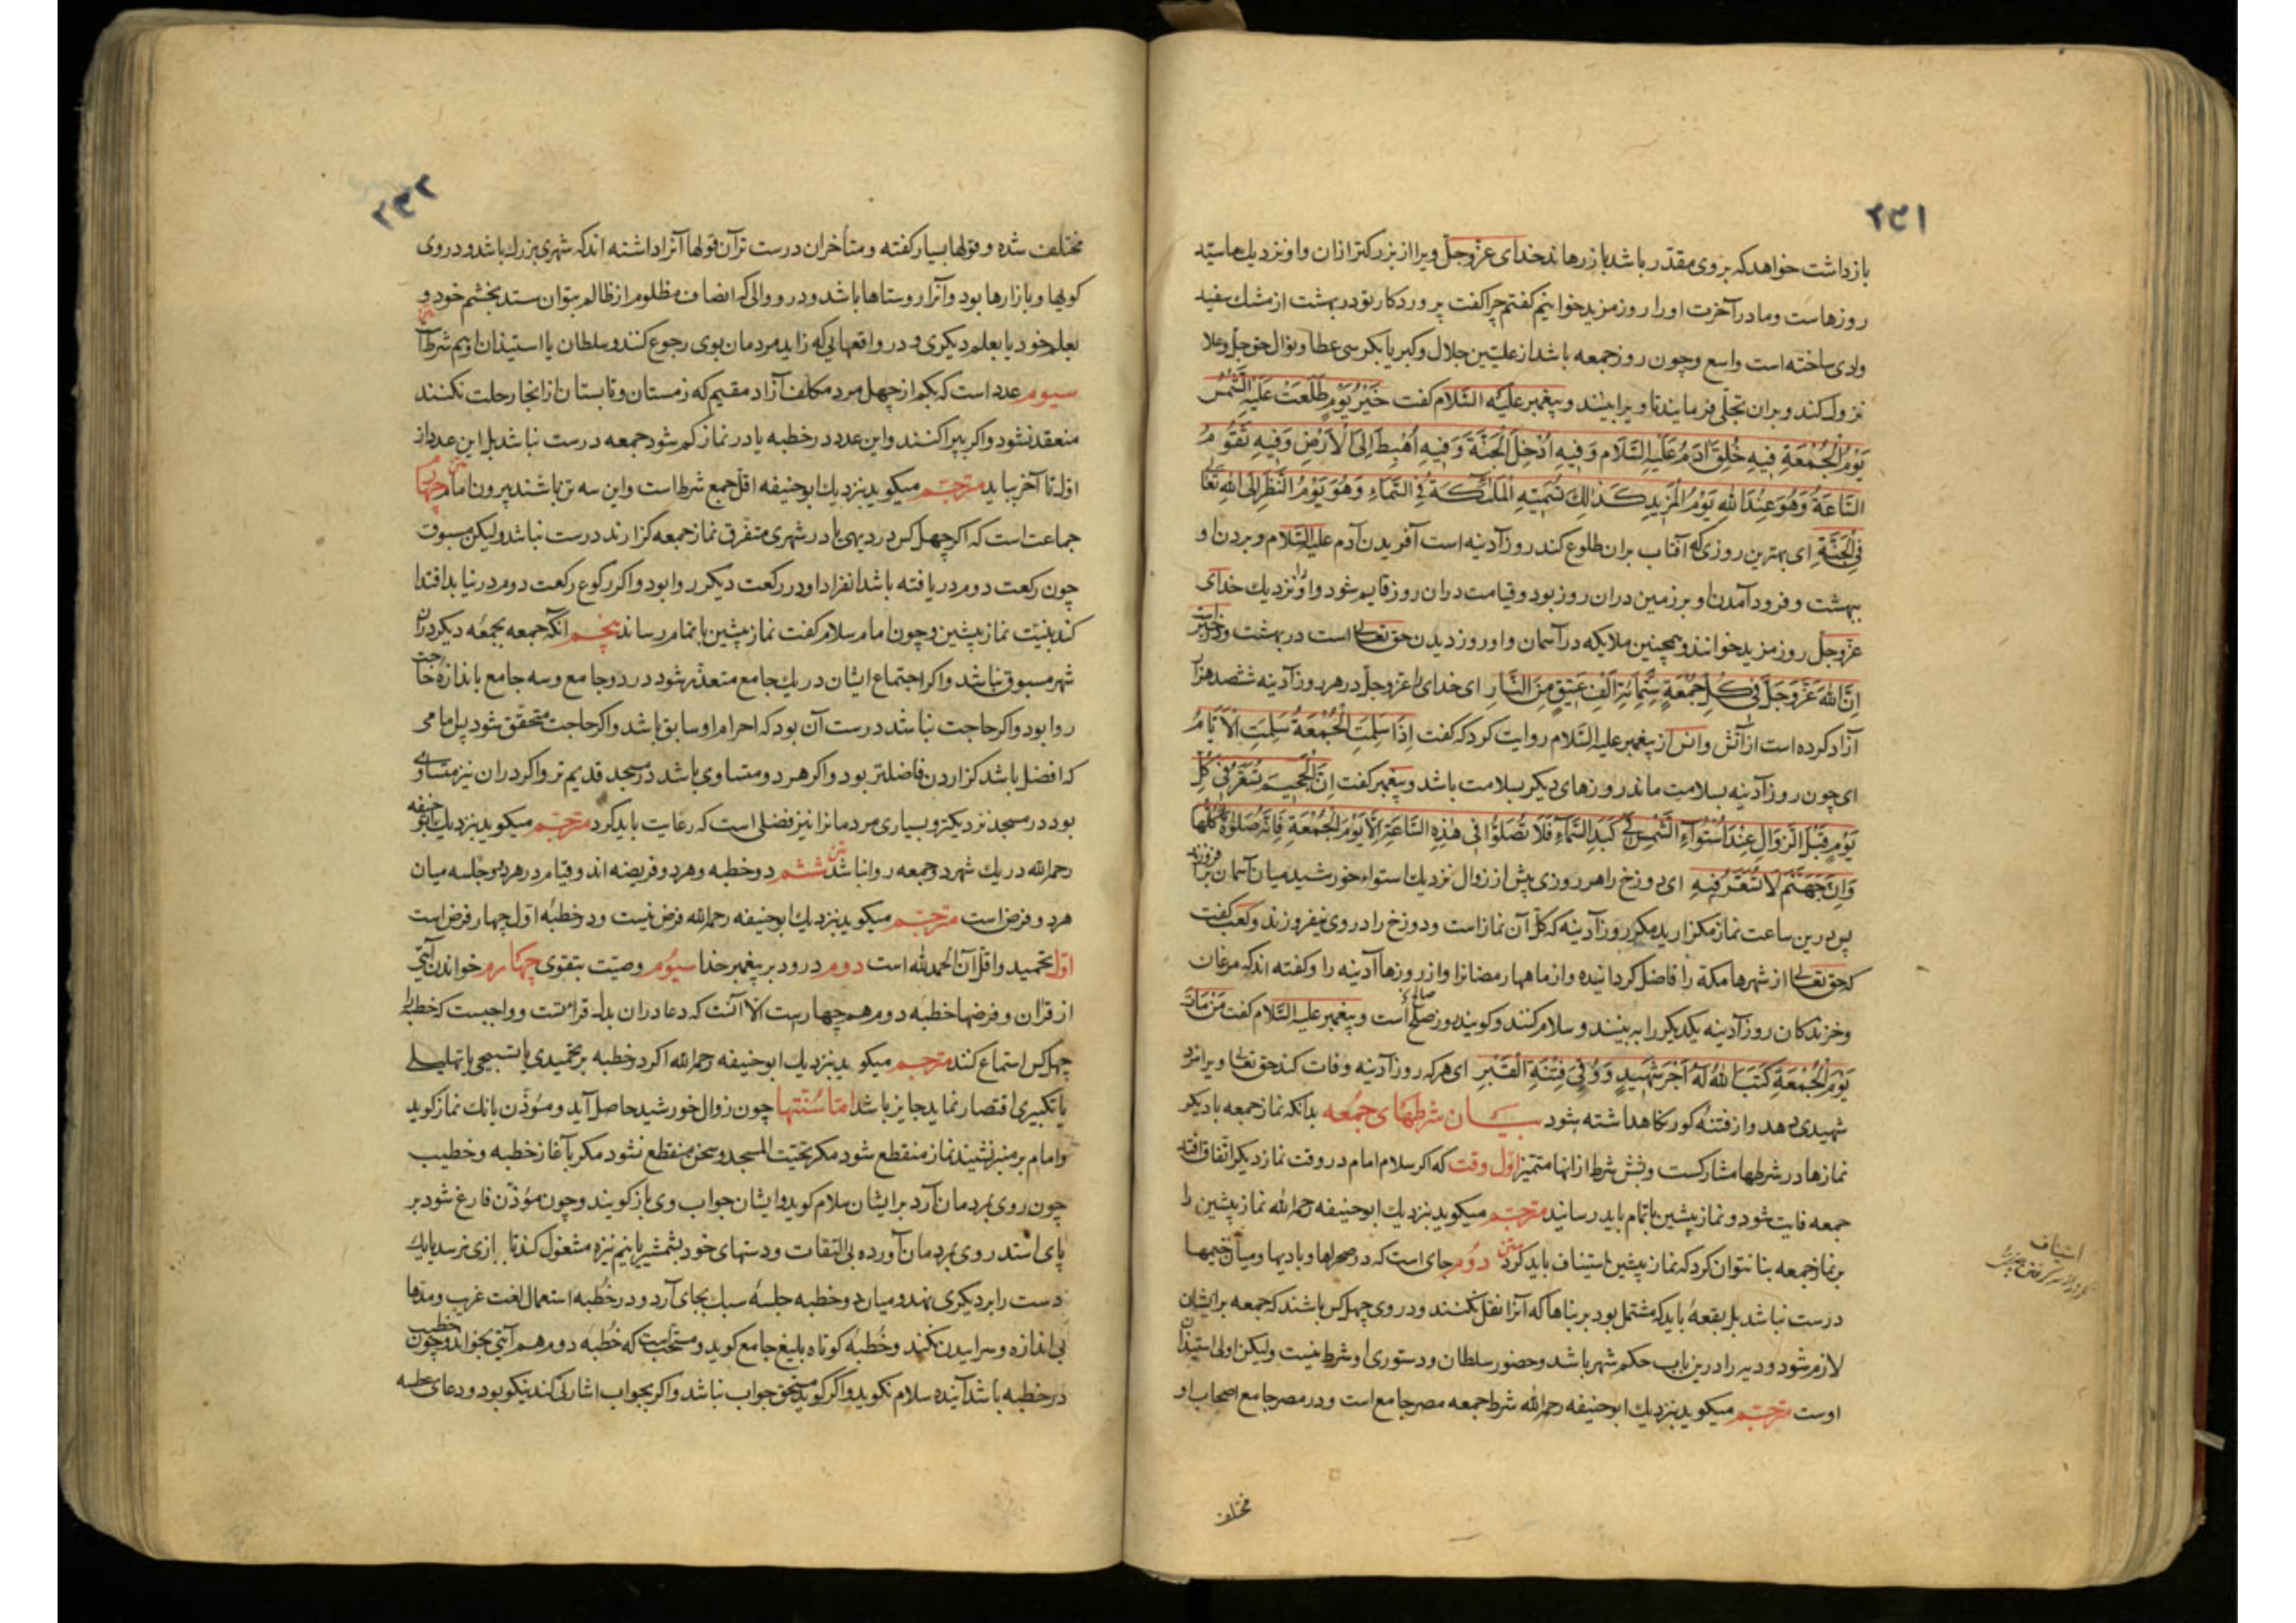 ۲۳۱
بازداشت خواهد که بر وی مقدّر باشد باز رهاند خدای عزّوجلّ ویرا از بزرکتر ازان و او نزدیك ما سیّد
روزهاست و ما در آخرت او را روز مزید خوانیم کفتم چرا کفت پروردکار تو در بهشت از مشك سفید
وادی ساخته است واسع و چون روز جمعه باشد از علیّین جلال و کبریا بکرسی عطا و نوال حق جلّ وعلا
نزول کند و بران تجلّی فرماید تا ویرا بینند و پیغمبر علیه السّلام کفت خَیْرُ یَوْمٍ طَلَعَتْ عَلَیْهِ الشَّمْسُ
یَوْمُ الْجُمُعَةِ فِیهِ خُلِقَ اٰدَمُ عَلَیْهِ السَّلَام وَفِیهِ اُدْخِلَ الْجَنَّةَ وَفِیهِ اُهْبِطَ اِلَی الْاَرْضِ وَفِیهِ تَقُومُ
السَّاعَةُ وَهُوَ عِنْدَ اللهِ یَوْمُ الْمَزِیدِ کَذٰلِكَ تُسَمِّیهِ الْمَلٰئِکَةُ فِی السَّمَاءِ وَهُوَ یَوْمُ النَّظَرِ اِلَی اللهِ تَعَالٰی
فِی الْجَنَّةِ ای بهترین روزی که آفتاب بران طلوع کند روز آدینه است آفریدن آدم علیه السّلام و بردن او
ببهشت و فرود آمدن او بر زمین دران روز بود و قیامت دران روز قایم شود و او را نزدیك خدای
عزّوجلّ روز مزید خوانند و همچنین ملایکه در آسمان و او روز دیدن حق تعالی است در بهشت و در خبر است
اِنَّ اللهَ عَزَّ وَجَلَّ فِی کُلِّ جُمُعَةٍ سِتَّمِائَةِ اَلْفِ عَتِیقٍ مِنَ النَّارِ ای خدای را عزّوجلّ در هر روز آدینه ششصد هزار
آزاد کرده است از آتش و انس از پیغمبر علیه السّلام روایت کرد که کفت اِذَا سَلِمَتِ الْجُمُعَةُ سَلِمَتِ الْاَیَّامُ
ای چون روز آدینه بسلامت ماند روزهای دیکر بسلامت باشد و پیغمبر کفت اِنَّ الْجَحِیمَ تُسَعَّرُ فِی کُلِّ
یَوْمٍ قَبْلَ الزَّوَالِ عِنْدَ اسْتِوَاءِ الشَّمْسِ فِی کَبِدِ السَّمَاءِ فَلَا تُصَلُّوا فِی هٰذِهِ السَّاعَةِ اِلَّا یَوْمَ الْجُمُعَةِ فَاِنَّهُ صَلٰوةٌ کُلُّهَا
وَاِنَّ جَهَنَّمَ لَا تُسَعَّرُ فِیهِ ای دوزخ را هر روزی پیش از زوال نزدیك استواء خورشید میان آسمان برافروزند
پس درین ساعت نماز مکزارید مکر روز آدینه که کل آن نماز است و دوزخ را در وی نیفروزند و کعب کفت
که حق تعالی از شهرها مکّه را فاضل کردانیده و از ماهها رمضانرا و از روزها آدینه را و کفته اند که مرغان
و خزندکان روز آدینه یکدیکر را ببینند و سلام کنند و کویند روز صالح است و پیغمبر علیه السّلام کفت مَنْ مَاتَ
یَوْمَ الْجُمُعَةِ کَتَبَ اللهُ لَهُ اَجْرَ شَهِیدٍ وَوُقِیَ فِتْنَةَ الْقَبْرِ ای هر که روز آدینه وفات کند حق تعالی ویرا مزد
شهیدی دهد و از فتنه کور نکاه داشته بشود بیان شرطهای جمعه بدانکه نماز جمعه با دیکر
نمازها در شرطها مشارکست و بشش شرط از انها متمیّز اوّل وقت که اکر سلام امام در وقت نماز دیکر اتّفاق افتد
جمعه فایت شود و نماز پیشین باتمام باید رسانید مترجم میکوید بنزدیك ابوحنیفه رحمه الله نماز پیشین را
بر نماز جمعه بنا نتوان کرد که نماز پیشین استیناف باید کرد متن دوم جای است که در صحراها و بادیها و میان خیمها
درست نباشد بل بقعهٔ باید که مشتمل بود بر بناها که آنرا نقل نکنند و در وی چهل کس باشند که جمعه بر ایشان
لازم شود و دیه را درین باب حکم شهر باشد و حضور سلطان و دستوری او شرط نیست ولیکن اولی استیذان
اوست مترجم میکوید بنزدیك ابوحنیفه رحمه الله شرط جمعه مصر جامع است و در مصر جامع اصحاب او
استیناف
مختلف
۲۳۲
مختلف شده و قولها بسیار کفته و متأخران درست تر آن قولها آنرا داشته اند که شهری بزرك باشد و در وی
کویها و بازارها بود و آنرا روستاها باشد و در و والی که انصاف مظلوم از ظالم بتوان ستد بخشم خود و
بعلم خود یا بعلم دیکری و در واقعهایی که زاید مردمان بوی رجوع کنند و سلطان یا استیذان او هم شرط آنست
سیوم عدد است که بکم از چهل مرد مکلف آزاد مقیم که زمستان و تابستان از انجا رحلت نکنند
منعقد نشود و اکر بپراکنند و این عدد در خطبه یا در نماز کم شود جمعه درست نباشد بل این عدد از
اوّل تا آخر بباید مترجم میکوید بنزدیك ابوحنیفه اقلّ جمع شرط است و این سه تن باشند بیرون امام متن چهارم
جماعت است که اکر چهل کس در دیهی یا در شهری متفرق نماز جمعه کزارند درست نباشد ولیکن مسبوق
چون رکعت دوم دریافته باشد انفراد او در رکعت دیکر روا بود و اکر رکوع رکعت دوم در نیابد اقتدا
کند بنیّت نماز پیشین و چون امام سلام کفت نماز پیشین باتمام رساند پنجم آنکه جمعه بجمعه دیکر دران
شهر مسبوق نباشد و اکر اجتماع ایشان در یك جامع متعذّر شود در دو جامع و سه جامع باندازهٔ حاجت
روا بود و اکر حاجت نباشد درست آن بود که احرام او سابق باشد و اکر حاجت متحقّق شود پس امامی
که افضل باشد کزاردن فاضلتر بود و اکر هر دو متساوی باشد در مسجد قدیم تر و اکر دران نیز متساوی
بود در مسجد نزدیکتر و بسیاری مردمانرا نیز فضلی است که رعایت باید کرد مترجم میکوید بنزدیك ابوحنیفه
رحمه الله در یك شهر دو جمعه روا نباشد متن ششم دو خطبه و هر دو فریضه اند و قیام در هر دو و جلسه میان
هر دو فرض است مترجم میکوید بنزدیك ابوحنیفه رحمه الله فرض نیست و در خطبه اوّل چهار فرض است
اوّل تحمید و اقل آن الحمد لله است دوم درود بر پیغمبر خدا سیوم وصیّت بتقوی چهارم خواندن آیتی
از قرآن و فرضها خطبه دوم هم چهار است الا آنست که دعا دران بدل قرائتست و واجبست که خطبه را
چهل کس استماع کنند مترجم میکوید بنزدیك ابوحنیفه رحمه الله اکر در خطبه بر تحمیدی یا تسبیحی یا تهلیلی
یا تکبیری اقتصار نماید جایز باشد امّا سنّتها چون زوال خورشید حاصل آید و مؤذّن بانك نماز کوید
و امام بر منبر نشیند نماز منقطع شود مکر تحیّت المسجد و سخن منقطع نشود مکر بآغاز خطبه و خطیب
چون روی بمردمان آرد بر ایشان سلام کوید و ایشان جواب وی باز کویند و چون مؤذّن فارغ شود بر
پای استد روی بمردمان آورده بی التفات و دستهای خود بشمشیر یا بنیم نیزه مشغول کند تا ببازی نرسد یا یك
دست را بر دیکری نهد و میان دو خطبه جلسهٔ سبك بجای آرد و در خطبه استعمال لغت غریب و مدّها
بی اندازه و سراییدن نکند و خطبه کوتاه بلیغ جامع کوید و مستحبّ است که خطبه دوم هم آیتی بخواند و چون خطیب
در خطبه باشد آینده سلام نکوید و اکر کوید مستحق جواب نباشد و اکر بجواب اشارتی کند نیکو بود و دعای عطسه